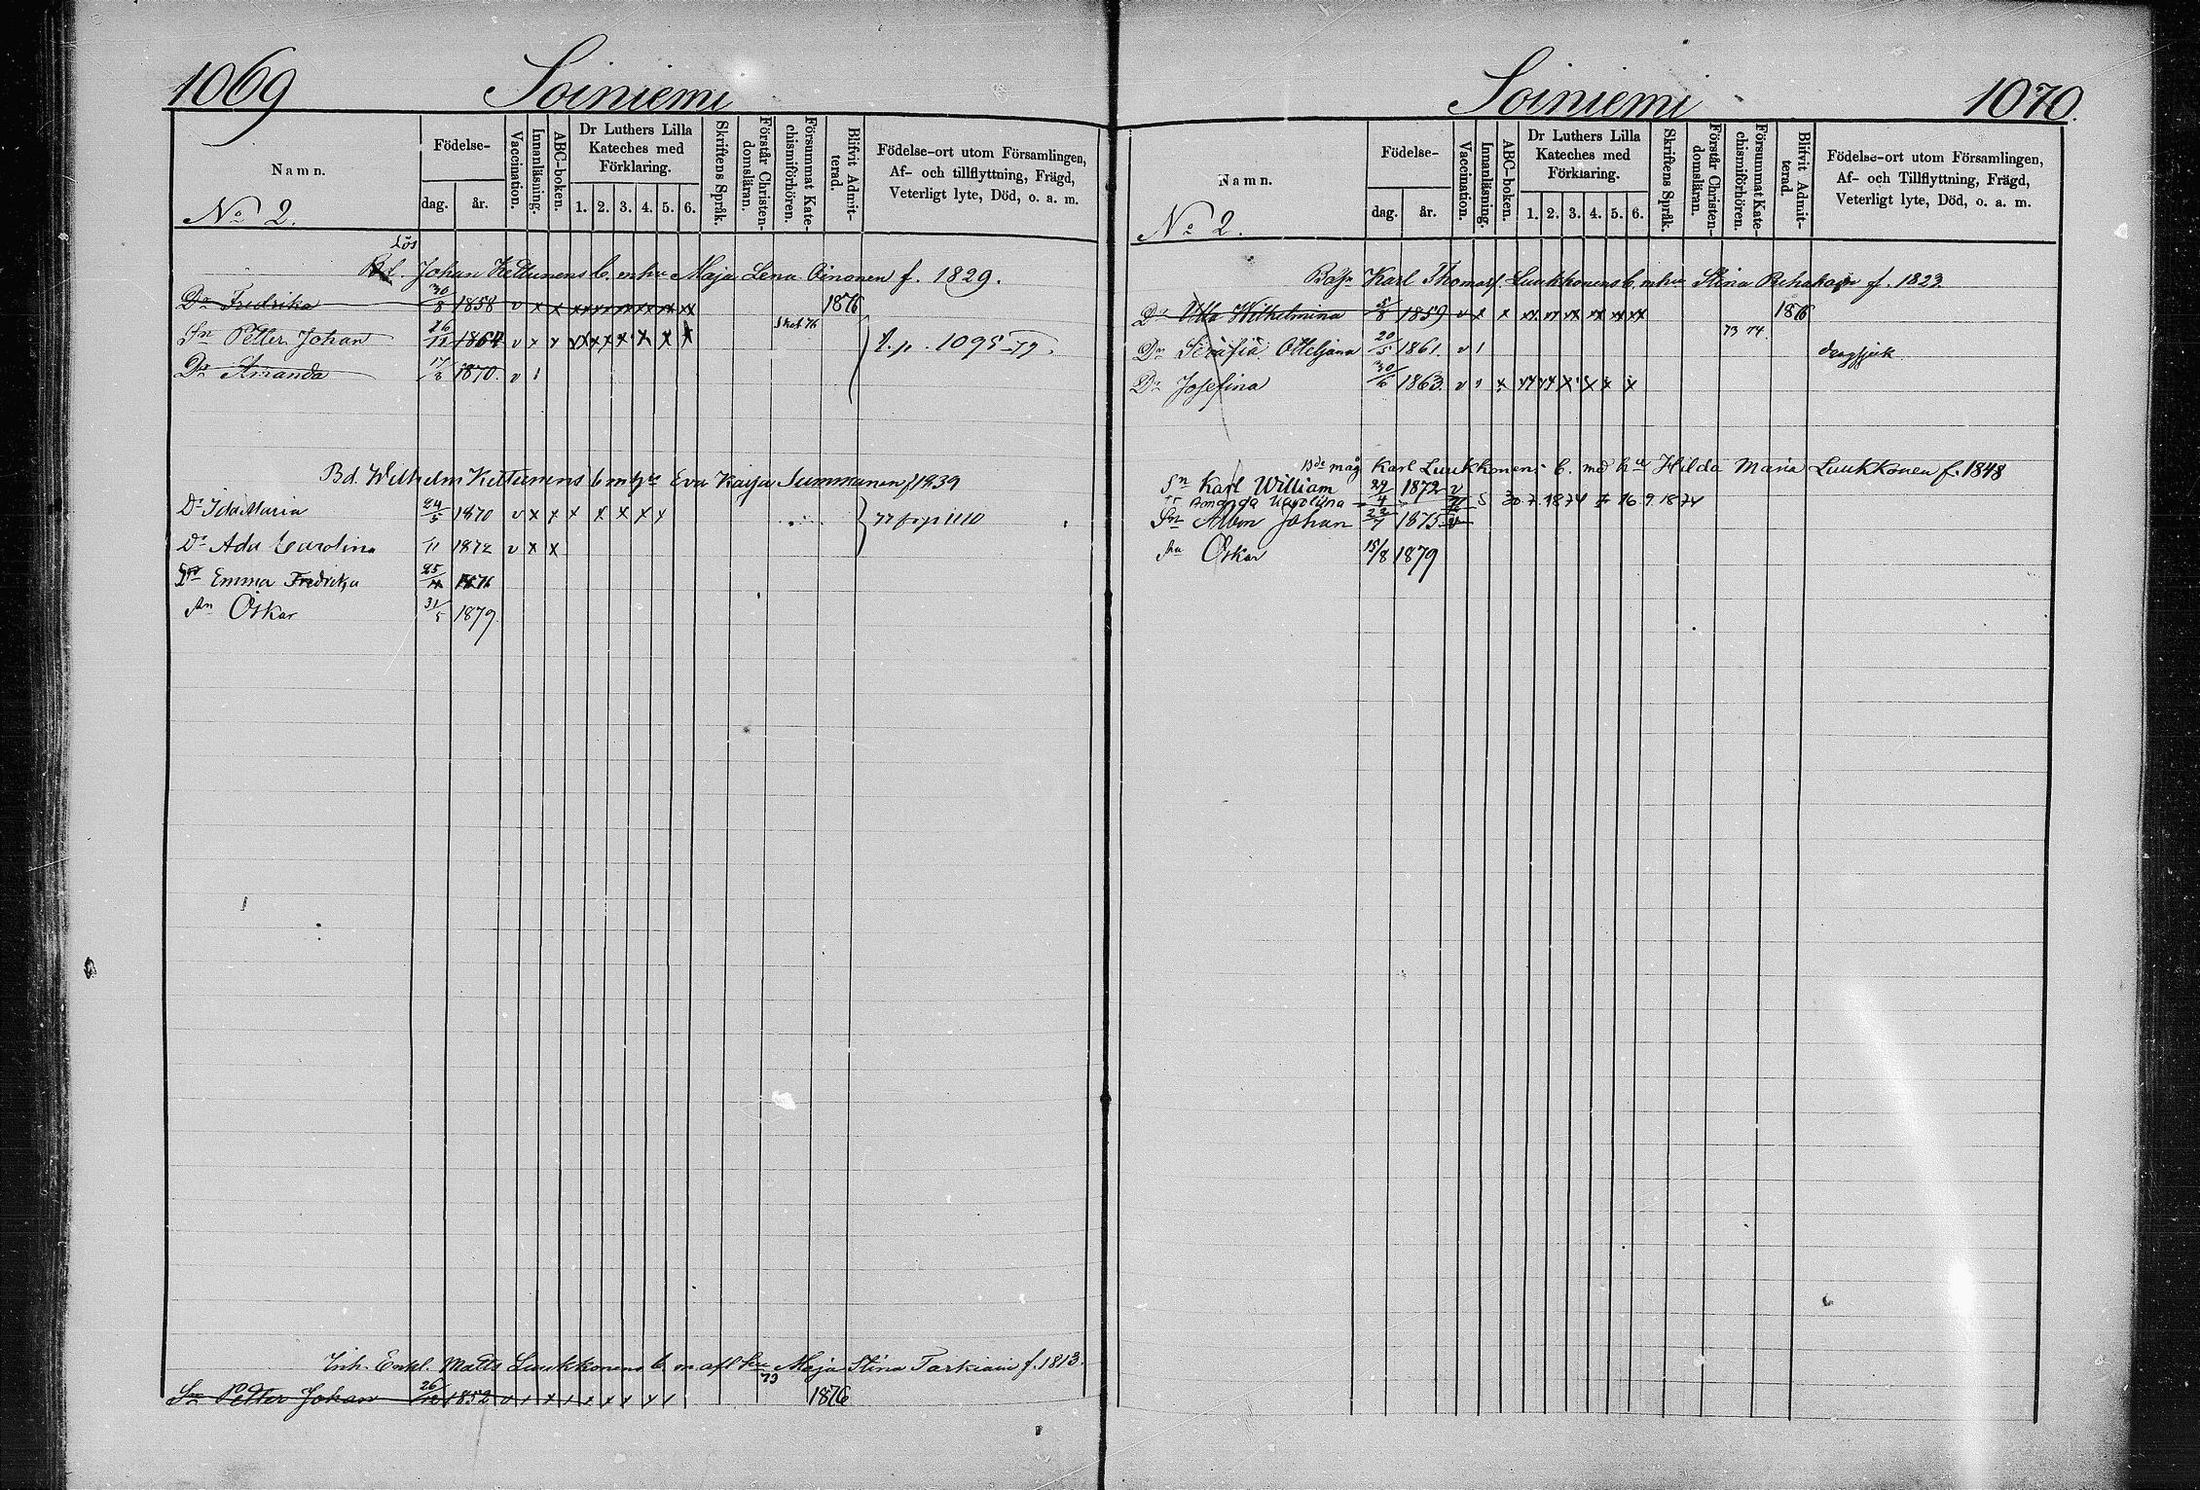 1069 Soiniemi
Namn.
Födelse-
dag. år.
Vaccination.
Innanläsning.
ABC-boken.
Dr Luthers Lilla
Kateches med
Förklaring.
1. 2. 3. 4. 5. 6.
Skriftens Språk.
Förstår Christen-
domsläran.
Försummat Kate-
chismiförhören.
Blifvit Admit-
terad.
Födelse-ort utom Församlingen,
Af- och tillflyttning, Frägd,
Veterligt lyte, Död, o. a. m.
No 2.
Lös
Johan Kettunens b. m hu Maja Lena Oinonen f. 1829.
Dr Fredrika 30/8 1858 v x x xx xx xx xx xx xx 1876
Sn Petter Johan 26/12 1864 v x x
t. p. 1095 - 79.
Dr Amanda 17/8 1870. v 1
Bd. Wilhelm Kettunens b m hu Eva Kaisa Summanen f 1839
Dr Ida Maria 24/5 1870 v x x x x x x x
77 fr p 1110
Dr Ada Carolina 1872 v x x
Emma Fredrika 1876
Sn Oskar 31/5 1879
Inh. Enkl. Matts Luukkonens b. m afl hu Maja Stina Tarkiain f. 1813.
73
Sn Petter Johan 26/12 1852 v 1 x 1 x x x 1876
Soiniemi 1070.
Namn.
Födelse-
dag. år.
Vaccination.
Innanläsning.
ABC-boken.
Dr Luthers Lilla
Kateches med
Förklaring.
1. 2. 3. 4. 5. 6.
Skriftens Språk.
Förstår Christen-
domsläran.
Försummat Kate-
chismiförhören.
Blifvit Admit-
terad.
Födelse-ort utom Församlingen,
Af- och Tillflyttning, Frägd,
Veterligt lyte, Död, o. a. m.
No 2.
Karl Thomasf. Luukkonens b. m hu Stina f. 1823.
Dr Ulla Wilhelmina 5/8 1859 v x x xx xx xx xx xx xx 1876
73 74.
Dr Serafia Otteljana 20/5 1861. v 1
Dr Josefina 30/6 1863
måg Karl Luukkonens b. med hu Hilda Maria Luukkonen f. 1848
Sn Karl William 29/4 1872 v
Amanda Karolina 30 7. 1874 ‡ 16 9 1874
Sn Albin Johan 22/7 1875 v
Sn Oskar 15/8 1879